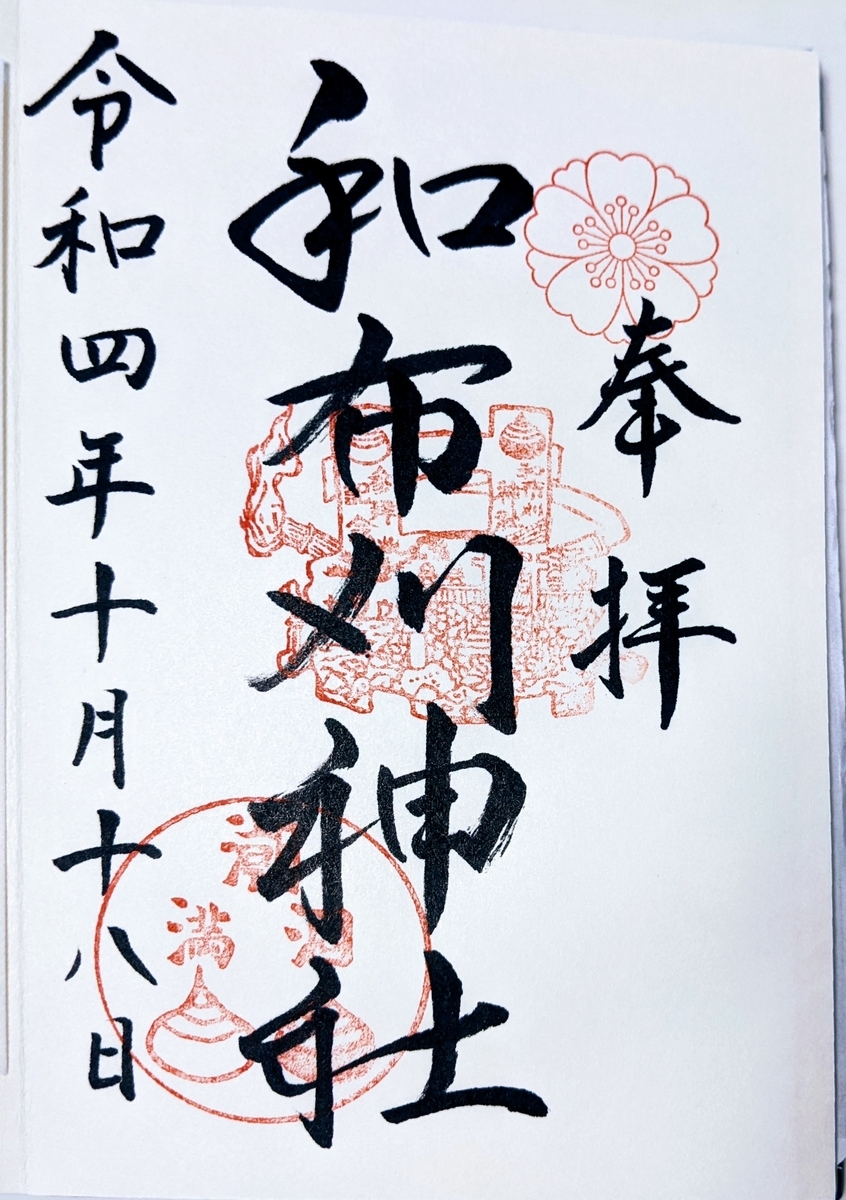 奉拝
和布刈神社
令和四年十月十八日
満